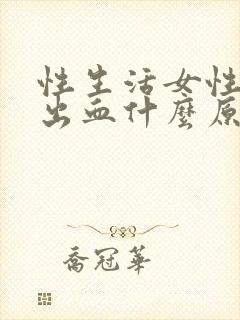 性生活女性
出血什麼原
喬冠華